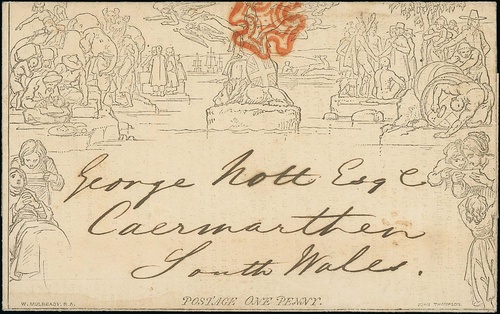 George Nott Esqe
Caermarthen
South Wales.
POSTAGE ONE PENNY.
W. MULREADY. R.A.
JOHN THOMPSON.